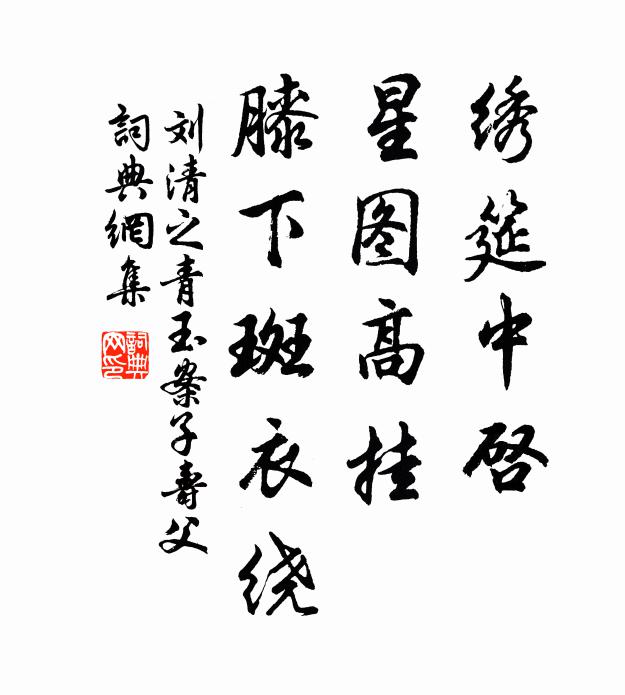 绣筵中啓
星图高挂
膝下斑衣绕
刘清之青玉案子寿父
詞典網集
詞典
网印